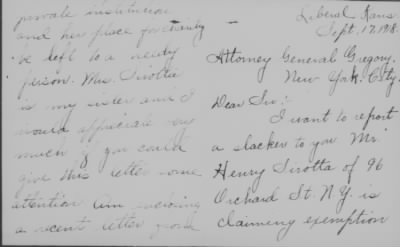 Liberal, Kans.
Sept. 17, 1918.
Attorney General Gregory,
New York City.
Dear Sir:-
I want to report
a slacker to you Mr.
Henry Sirotta of 96
Orchard St. N.Y. is
claiming exemption
private institution
and her place for charity
be left to a needy
person. Mrs. Sirotta
is my sister and I
would appreciate very
much if you could
give this letter some
attention am inclosing
a recent letter